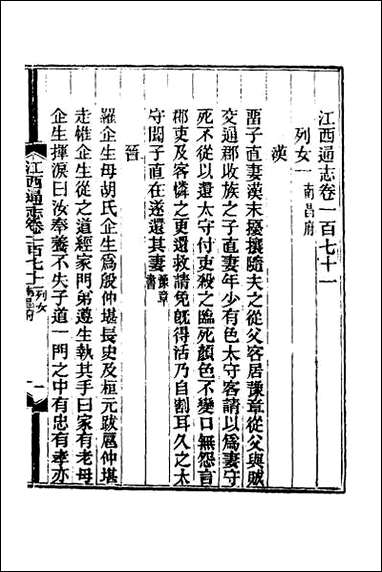 江西通志卷一百七十一
列女一 南昌府
漢
䛐子直妻漢末擾攘隨夫之從父客居豫章從父與賊
交通郡收族之子直妻年少有色太守客請以爲妻守
死不從以還太守付吏殺之臨死顏色不變口無怨言
郡吏及客憐之更還救請免旣得活乃自割耳久之太
守聞子直在遂還其妻 豫章書
晉
羅企生母胡氏企生爲殷仲堪長史及桓元跋扈仲堪
走惟企生從之道經家門弟遵生執其手曰家有老母
企生揮淚曰汝奉養不失子道一門之中有忠有孝亦
江西通志卷一百七十一 列女 南昌府 一